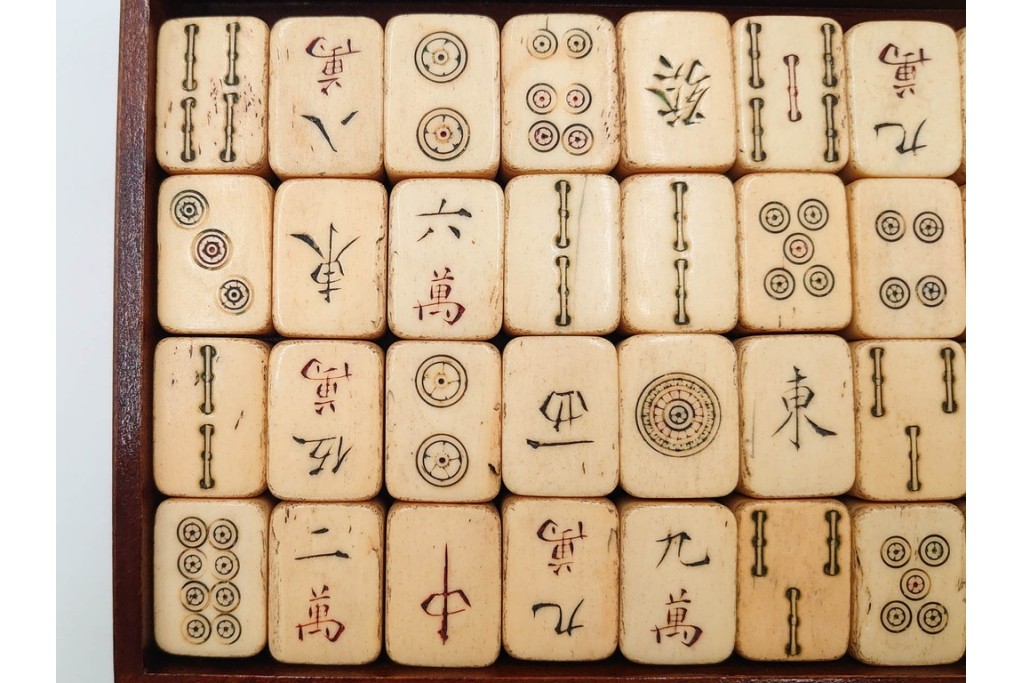 八萬
發
九萬
東
六萬
伍萬
西
東
二萬
中
九萬
九萬